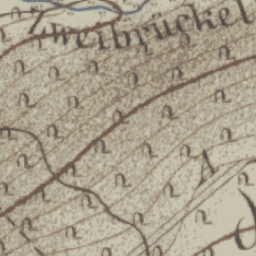 Zweibrückel
A